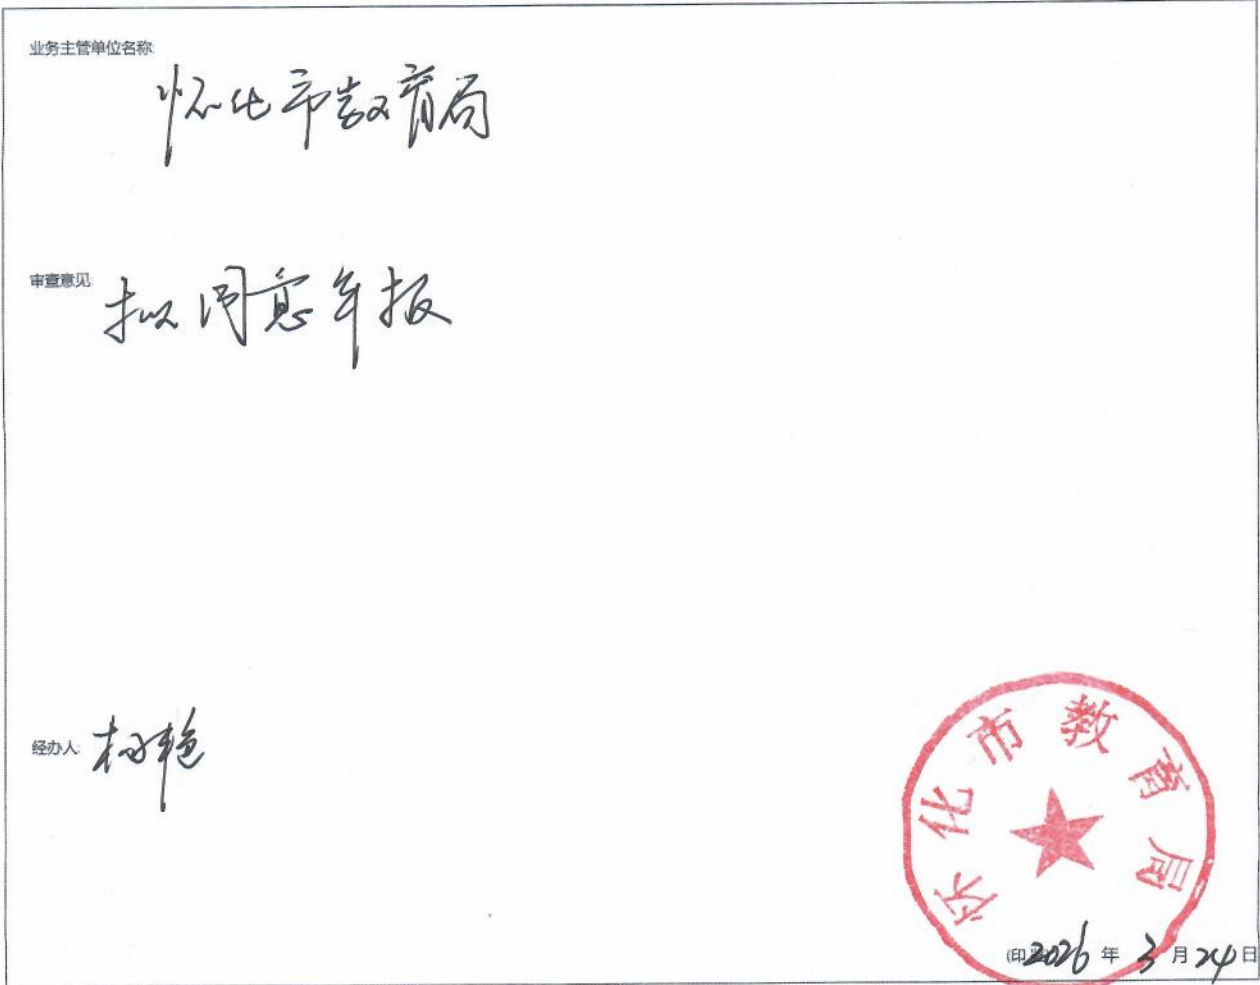 业务主管单位名称:
怀化市教育局
审查意见:
拟同意年报
经办人:
怀化市教育局
(印 2026 年 3 月 24 日